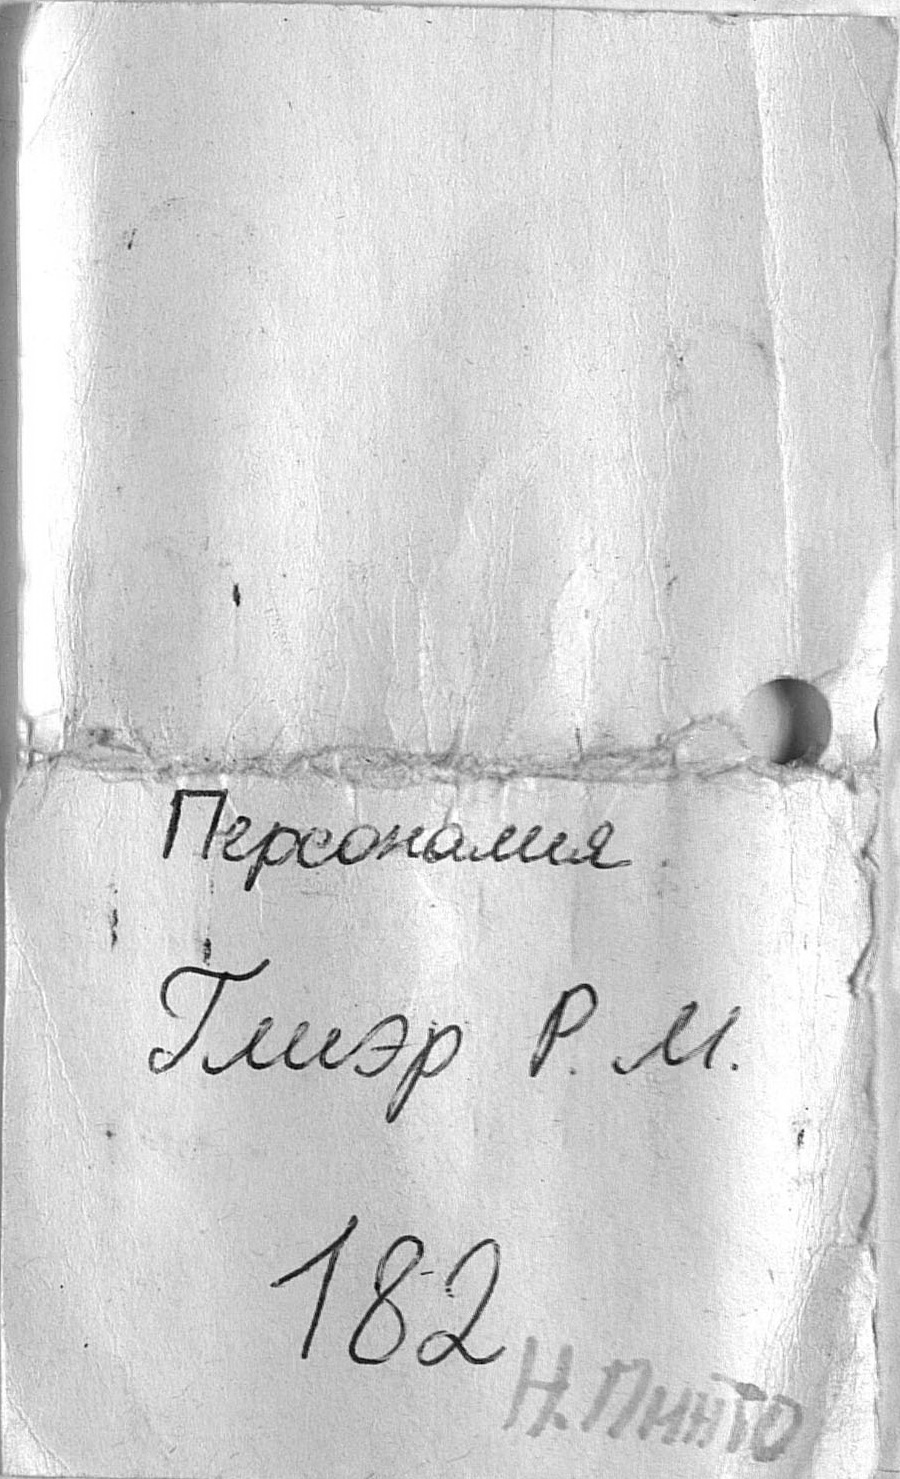 Персоналия
Глиэр Р. М.
182
Н. Пинто